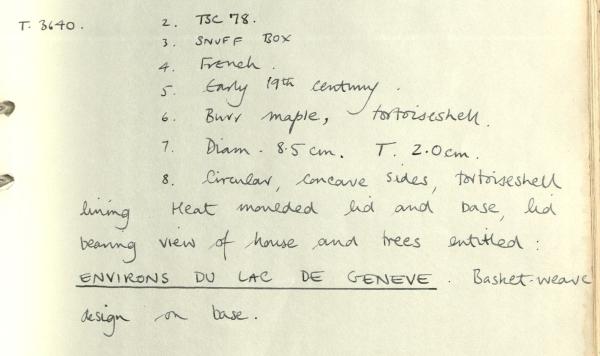 T. 3640. 2. TSC 78.
3. SNUFF BOX
4. French.
5. Early 19th century.
6. Burr maple, tortoiseshell.
7. Diam. 8.5cm. T. 2.0cm.
8. Circular, concave sides, tortoiseshell
lining Heat moulded lid and base, lid
bearing view of house and trees entitled:
ENVIRONS DU LAC DE GENEVE. Basket-weave
design on base.